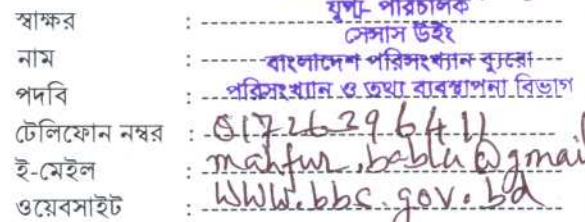 যুগ্ম- পরিচালক
স্বাক্ষর :
সেন্সাস উইং
নাম : বাংলাদেশ পরিসংখ্যান ব্যুরো
পদবি : পরিসংখ্যান ও তথ্য ব্যবস্থাপনা বিভাগ
টেলিফোন নম্বর : 01726396411
ই-মেইল : mahfur.bablu@gmail
ওয়েবসাইট : www.bbc.gov.bd